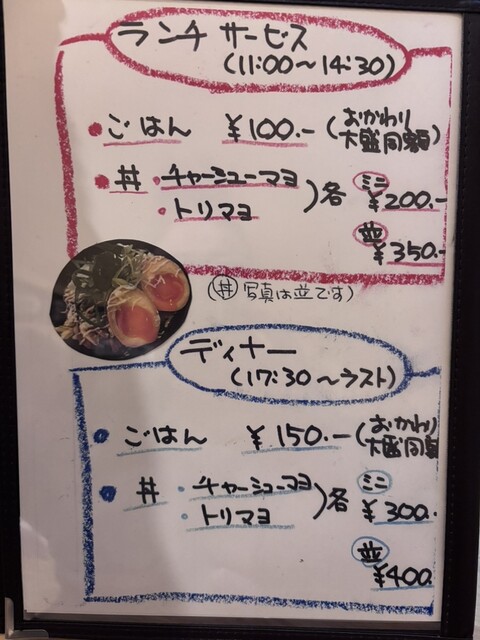 ランチ サービス
(11:00～14:30)
● ごはん ￥100.- (おかわり
大盛同額)
● 丼 ・チャーシューマヨ
・トリマヨ ) 各
ミニ
￥200.-
並
￥350.-
(丼 写真は並です)
ディナー
(17:30～ラスト)
● ごはん ￥150.- (おかわり
大盛同
● 丼 ・チャーシューマヨ
・トリマヨ ) 各
ミニ
￥300.
並
￥400.